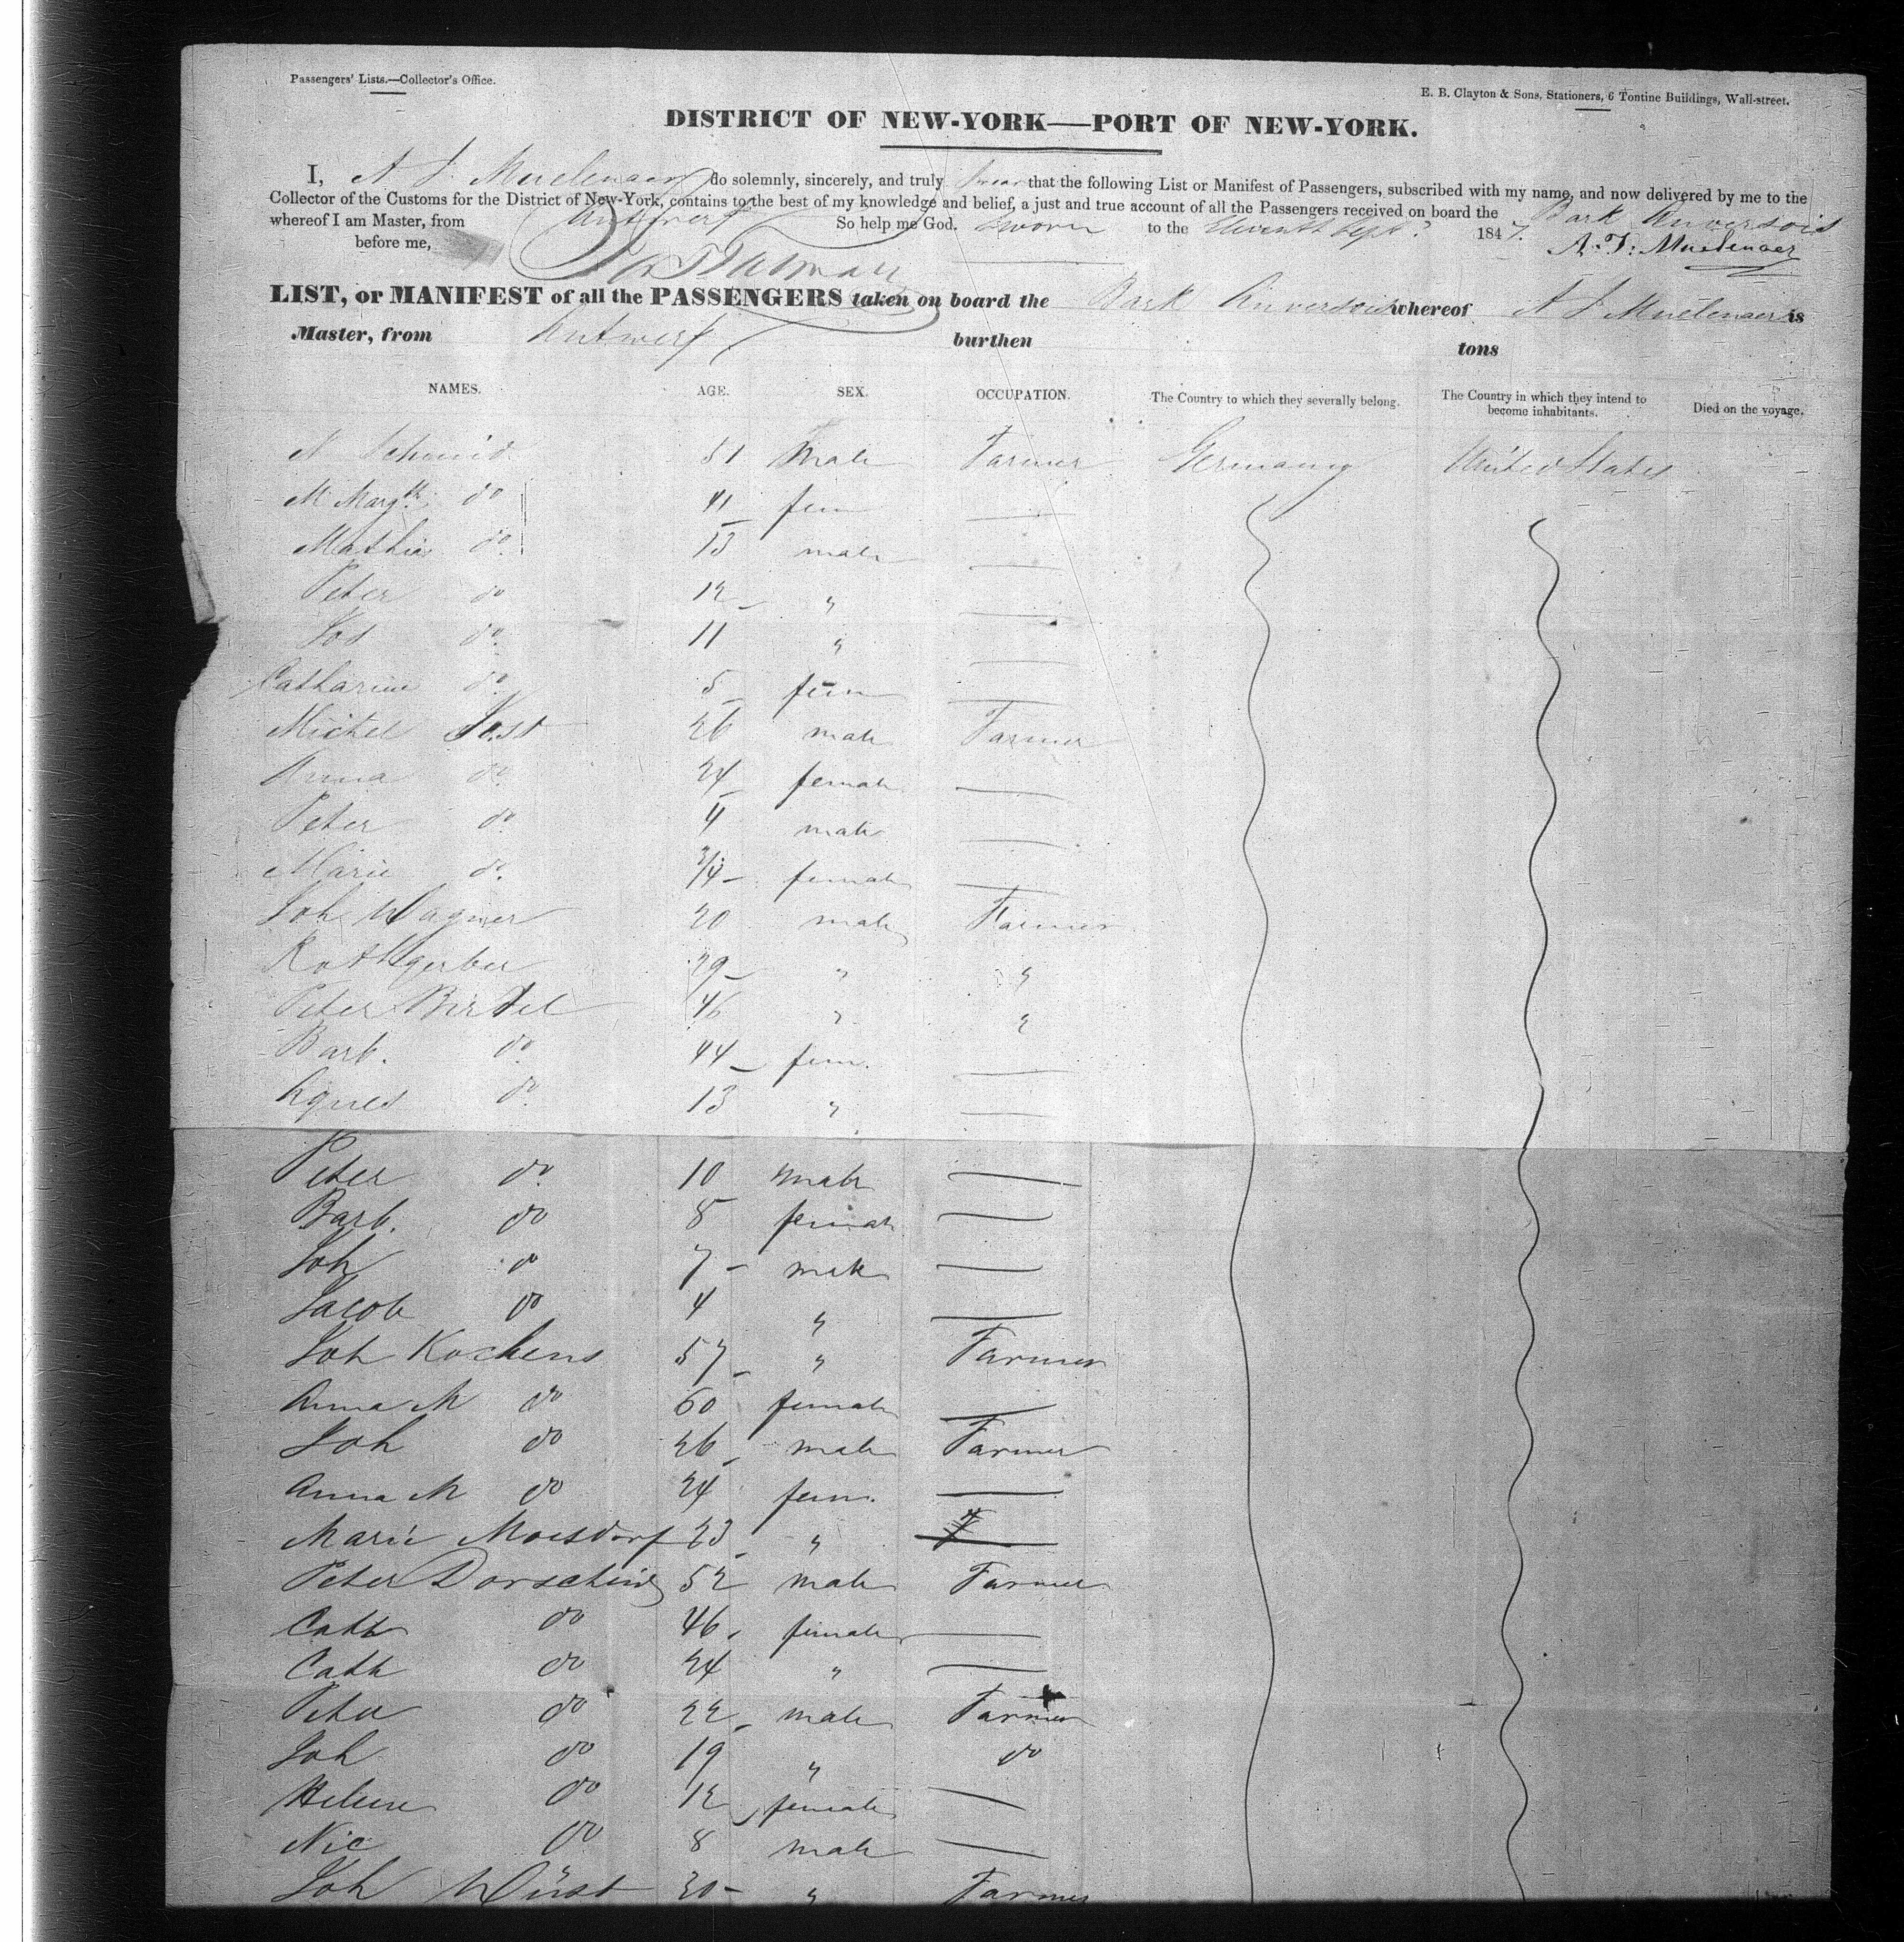 Passengers' Lists.—Collector's Office.
E. B. Clayton & Sons, Stationers, 6 Tontine Buildings, Wall-street.
DISTRICT OF NEW-YORK—PORT OF NEW-YORK.
I, A J Muelenaer do solemnly, sincerely, and truly swear that the following List or Manifest of Passengers, subscribed with my name, and now delivered by me to the
Collector of the Customs for the District of New-York, contains to the best of my knowledge and belief, a just and true account of all the Passengers received on board the Bark Anversois
whereof I am Master, from Antwerp So help me God. Sworn to the Eleventh Sept. 1847.
before me, A. J. Muelenaer
LIST, or MANIFEST of all the PASSENGERS taken on board the Bark Anversois whereof A J Muelenaer is
Master, from Antwerp burthen tons
NAMES. AGE. SEX. OCCUPATION. The Country to which they severally belong. The Country in which they intend to become inhabitants. Died on the voyage.
N Schmid 51 Male Farmer Germany United States
M Margth do 41 fem
Mathia do 13 male
Peter do 12 "
Jos do 11 "
Catharine do 5 fem
Michel Jost 26 male Farmer
Anna do 24 female
Peter do 4 male
Marie do 3/4 female
Joh Wagner 20 male Farmer
Rothgerber 29 " "
Peter Birtel 46 " "
Barb. do 44 fem.
Agnes do 13 "
Peter do 10 male
Barb. do 8 female
Joh do 7 male
Jacob do 4 "
Joh Kochens 57 " Farmer
Anna M do 60 female
Joh do 26 male Farmer
Anna M do 24 fem.
Marie Moesdorf 23 "
Peter Dorscheid 52 male Farmer
Cath do 46 female
Cath do 24 "
Peter do 22 male Farmer
Joh do 19 " do
Helene do 12 female
Nic do 8 male
Joh Wüst 30 " Farmer